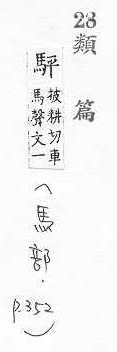 28
類篇
駍 披耕切車
馬聲文一
(馬部.
p.352)